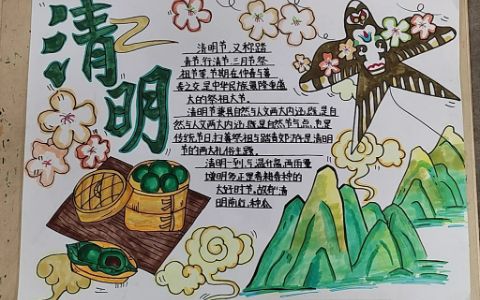 清明
清明节，又称踏
青节、行清节、三月节、祭
祖节等，节期在仲春与暮
春之交，是中华民族最隆重盛
大的祭祖大节。
清明节兼具自然与人文两大内涵，既是自
然与人文两大内涵，既是自然节气点，也是
传统节日，扫墓祭祖与踏青郊游是清明
节的两大礼俗主题。
清明一到，气温升高，雨量
增多，正是春耕春种的
大好时节。故有“清
明前后，种瓜